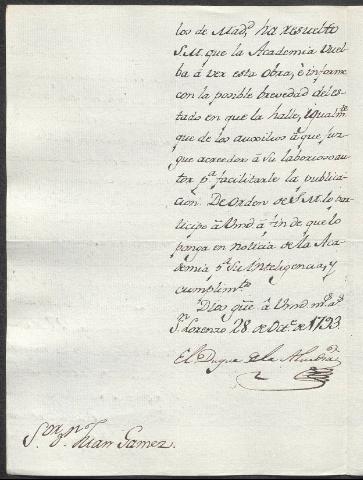 los de Mad.d ha resuelto
S.M. que la Academia vuel-
ba à ver esta obra, è informe
con la posible brevedad del es-
tado en que la halle, igualm.te
que de los auxilios à que juz-
gue acreedor à su laborioso au-
tor p.a facilitarle la publica-
cion. De orden de S.M. lo par-
ticipo à Vmd à fin de que lo
ponga en noticia de la Aca-
demia p.a su inteligencia, y
cumplim.to
Dios gue. à Vmd m.s a.s
S.n Lorenzo 28. de Oct.e de 1793.
El Duque de la Alcudia
S.or D.n Juan Gamez.